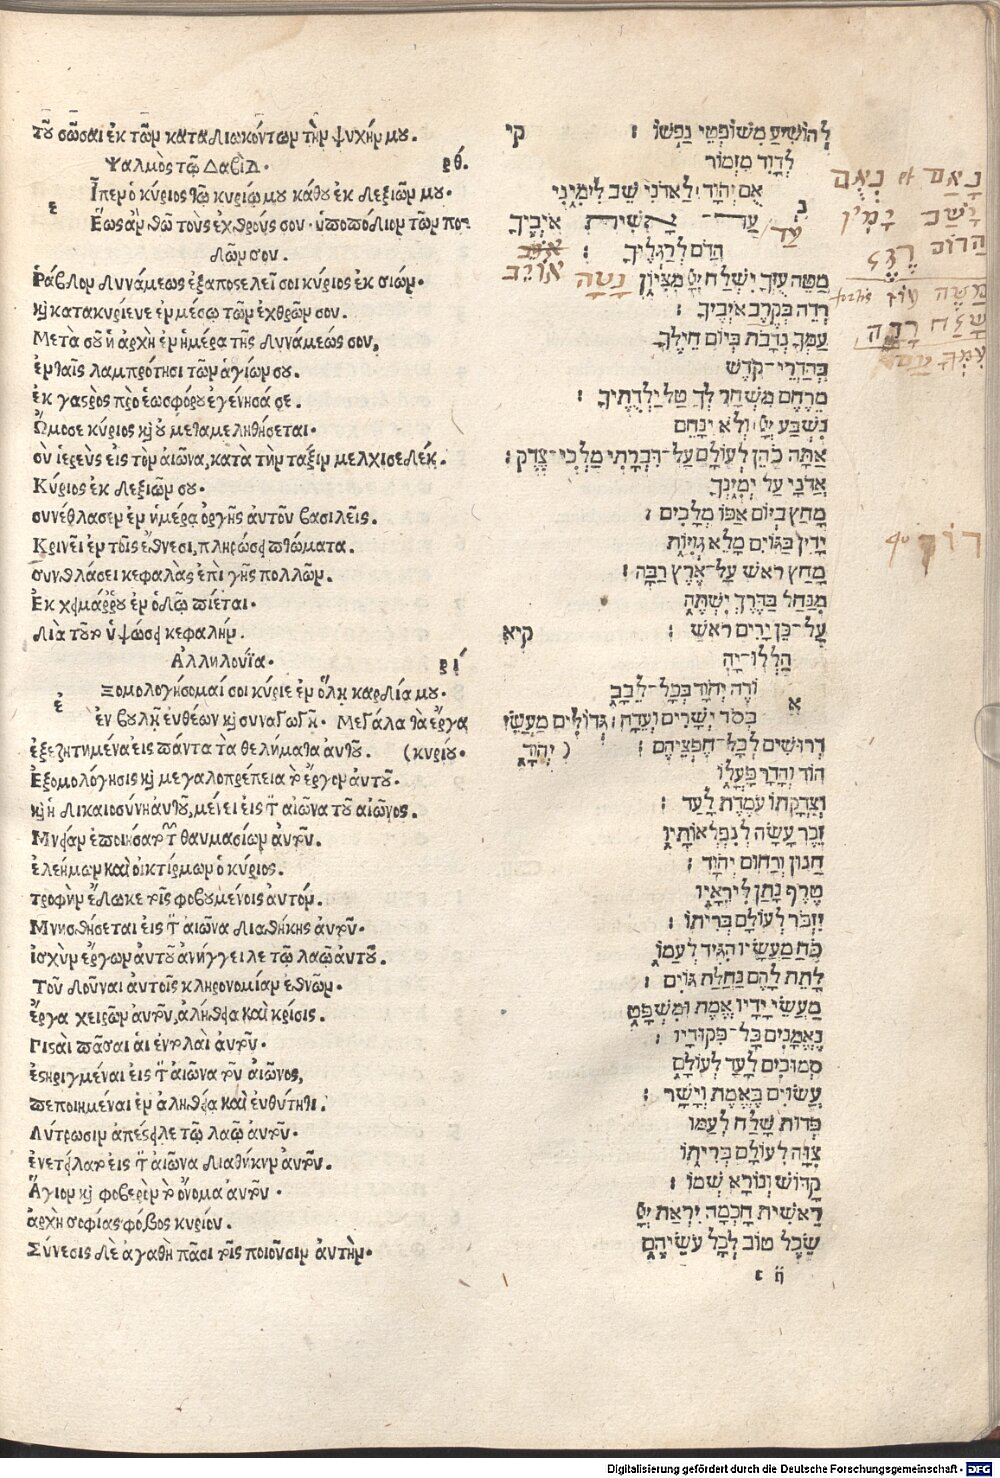 τοῦ σῶσαι ἐκ τῶν καταδιωκόντων τὴν ψυχήν μου.
Ψαλμὸς τῷ Δαβίδ. ρθ.
Ἶπεν ὁ κύριος τῷ κυρίῳ μου κάθου ἐκ δεξιῶν μου.
ε
Ἕως ἂν θῶ τοὺς ἐχθρούς σου· ὑποπόδιον τῶν πο-
δῶν σου.
Ῥάβδον δυνάμεως ἐξαποστελεῖ σοι κύριος ἐκ σιών.
καὶ κατακυρίευε ἐν μέσῳ τῶν ἐχθρῶν σου.
Μετὰ σοῦ ἡ ἀρχὴ ἐν ἡμέρα τῆς δυνάμεώς σου,
ἐν ταῖς λαμπρότησι τῶν ἁγίων σου.
ἐκ γαστρὸς πρὸ ἑωσφόρου ἐγέννησά σε.
Ὤμοσε κύριος καὶ οὐ μεταμεληθήσεται.
σὺ ἱερεὺς εἰς τὸν αἰῶνα, κατὰ τὴν τάξιν μελχισεδέκ.
Κύριος ἐκ δεξιῶν σου.
συνέθλασεν ἐν ἡμέρα ὀργῆς αὐτοῦ βασιλεῖς.
Κρινεῖ ἐν τοῖς ἔθνεσι, πληρώσει πτώματα.
συνθλάσει κεφαλὰς ἐπὶ γῆς πολλῶν.
Ἐκ χειμάρρου ἐν ὁδῷ πίεται.
διὰ τοῦτο ὑψώσει κεφαλήν.
Ἀλληλούϊα. ρι
Ξομολογήσομαί σοι κύριε ἐν ὅλῃ καρδία μου.
ἐ
ἐν βουλῇ εὐθέων καὶ συναγωγῇ. Μεγάλα τὰ ἔργα
ἐξεζητημένα εἰς πάντα τὰ θελήματα αὐτοῦ. (κυρίου.
Ἐξομολόγησις καὶ μεγαλοπρέπεια τὸ ἔργον αὐτοῦ.
καὶ ἡ δικαιοσύνη αὐτοῦ, μένει εἰς τὸν αἰῶνα τοῦ αἰῶνος.
Μνείαν ἐποιήσατο τῶν θαυμασίων αὐτοῦ.
ἐλεήμων καὶ οἰκτίρμων ὁ κύριος.
τροφὴν ἔδωκε τοῖς φοβουμένοις αὐτόν.
Μνησθήσεται εἰς τὸν αἰῶνα διαθήκης αὐτοῦ.
ἰσχὺν ἔργων αὐτοῦ ἀνήγγειλε τῷ λαῷ αὐτοῦ.
Τοῦ δοῦναι αὐτοῖς κληρονομίαν ἐθνῶν.
ἔργα χειρῶν αὐτοῦ, ἀλήθεια καὶ κρίσις.
Πισταὶ πᾶσαι αἱ ἐντολαὶ αὐτοῦ.
ἐστηριγμέναι εἰς τὸν αἰῶνα τοῦ αἰῶνος,
πεποιημέναι ἐν ἀληθεία καὶ εὐθύτητι.
Λύτρωσιν ἀπέστειλε τῷ λαῷ αὐτοῦ.
ἐνετείλατο εἰς τὸν αἰῶνα διαθήκην αὐτοῦ.
Ἅγιον καὶ φοβερὸν τὸ ὄνομα αὐτοῦ.
ἀρχὴ σοφίας φόβος κυρίου.
Σύνεσις δὲ ἀγαθὴ πᾶσι τοῖς ποιοῦσιν αὐτήν.
לְהוֹשִׁיעַ מִשּׁוֹפְטֵי נַפְשׁוֹ : קי
לְדָוִד מִזְמוֹר
אֻם יְהוָֹה לַאדֹנִי שֵׁב לִימִינִי
נ
עַד אָשִׁית אֹיְבֶיךָ
הֲדֹם לְרַגְלֶיךָ :
מַטֵּה עֻזְּךָ יִשְׁלַח יְיָ מִצִּיּוֹן
רְדֵה בְּקֶרֶב אֹיְבֶיךָ :
עַמְּךָ נְדָבֹת בְּיוֹם חֵילֶךָ
בְּהַדְרֵי־קֹדֶשׁ
מֵרֶחֶם מִשְׁחָר לְךָ טַל יַלְדֻתֶיךָ :
נִשְׁבַּע יְיָ וְלֹא יִנָּחֵם
אַתָּה כֹהֵן לְעוֹלָם עַל־דִּבְרָתִי מַלְכִּי־צֶדֶק :
אֲדֹנָי עַל יְמִינְךָ
מָחַץ בְּיוֹם אַפּוֹ מְלָכִים :
יָדִין בַּגּוֹיִם מָלֵא גְוִיּוֹת
מָחַץ רֹאשׁ עַל־אֶרֶץ רַבָּה :
מִנַּחַל בַּדֶּרֶךְ יִשְׁתֶּה
עַל־כֵּן יָרִים רֹאשׁ : קיא
הַלְלוּ־יָהּ
וֹדֶה יְהוָֹה בְּכָל־לֵבָב
א
בְּסוֹד יְשָׁרִים וְעֵדָה : גְּדוֹלִים מַעֲשֵׂי
דְּרוּשִׁים לְכָל־חֶפְצֵיהֶם : ( יְהוָֹה
הוֹד וְהָדָר פָּעֳלוֹ
וְצִדְקָתוֹ עֹמֶדֶת לָעַד :
זֵכֶר עָשָׂה לְנִפְלְאוֹתָיו
חַנּוּן וְרַחוּם יְהוָֹה :
טֶרֶף נָתַן לִירֵאָיו
יִזְכֹּר לְעוֹלָם בְּרִיתוֹ :
כֹּחַ מַעֲשָׂיו הִגִּיד לְעַמּוֹ
לָתֵת לָהֶם נַחֲלַת גּוֹיִם :
מַעֲשֵׂי יָדָיו אֱמֶת וּמִשְׁפָּט
נֶאֱמָנִים כָּל־פִּקּוּדָיו :
סְמוּכִים לָעַד לְעוֹלָם
עֲשׂוּיִם בֶּאֱמֶת וְיָשָׁר :
פְּדוּת שָׁלַח לְעַמּוֹ
צִוָּה לְעוֹלָם בְּרִיתוֹ
קָדוֹשׁ וְנוֹרָא שְׁמוֹ :
רֵאשִׁית חָכְמָה יִרְאַת יְיָ
שֵׂכֶל טוֹב לְכָל עֹשֵׂיהֶם
ε ii
נָאַם et נְאֻם
עַד
נָטָה
אוֹיֵב
Digitalisierung gefördert durch die Deutsche Forschungsgemeinschaft - DFG